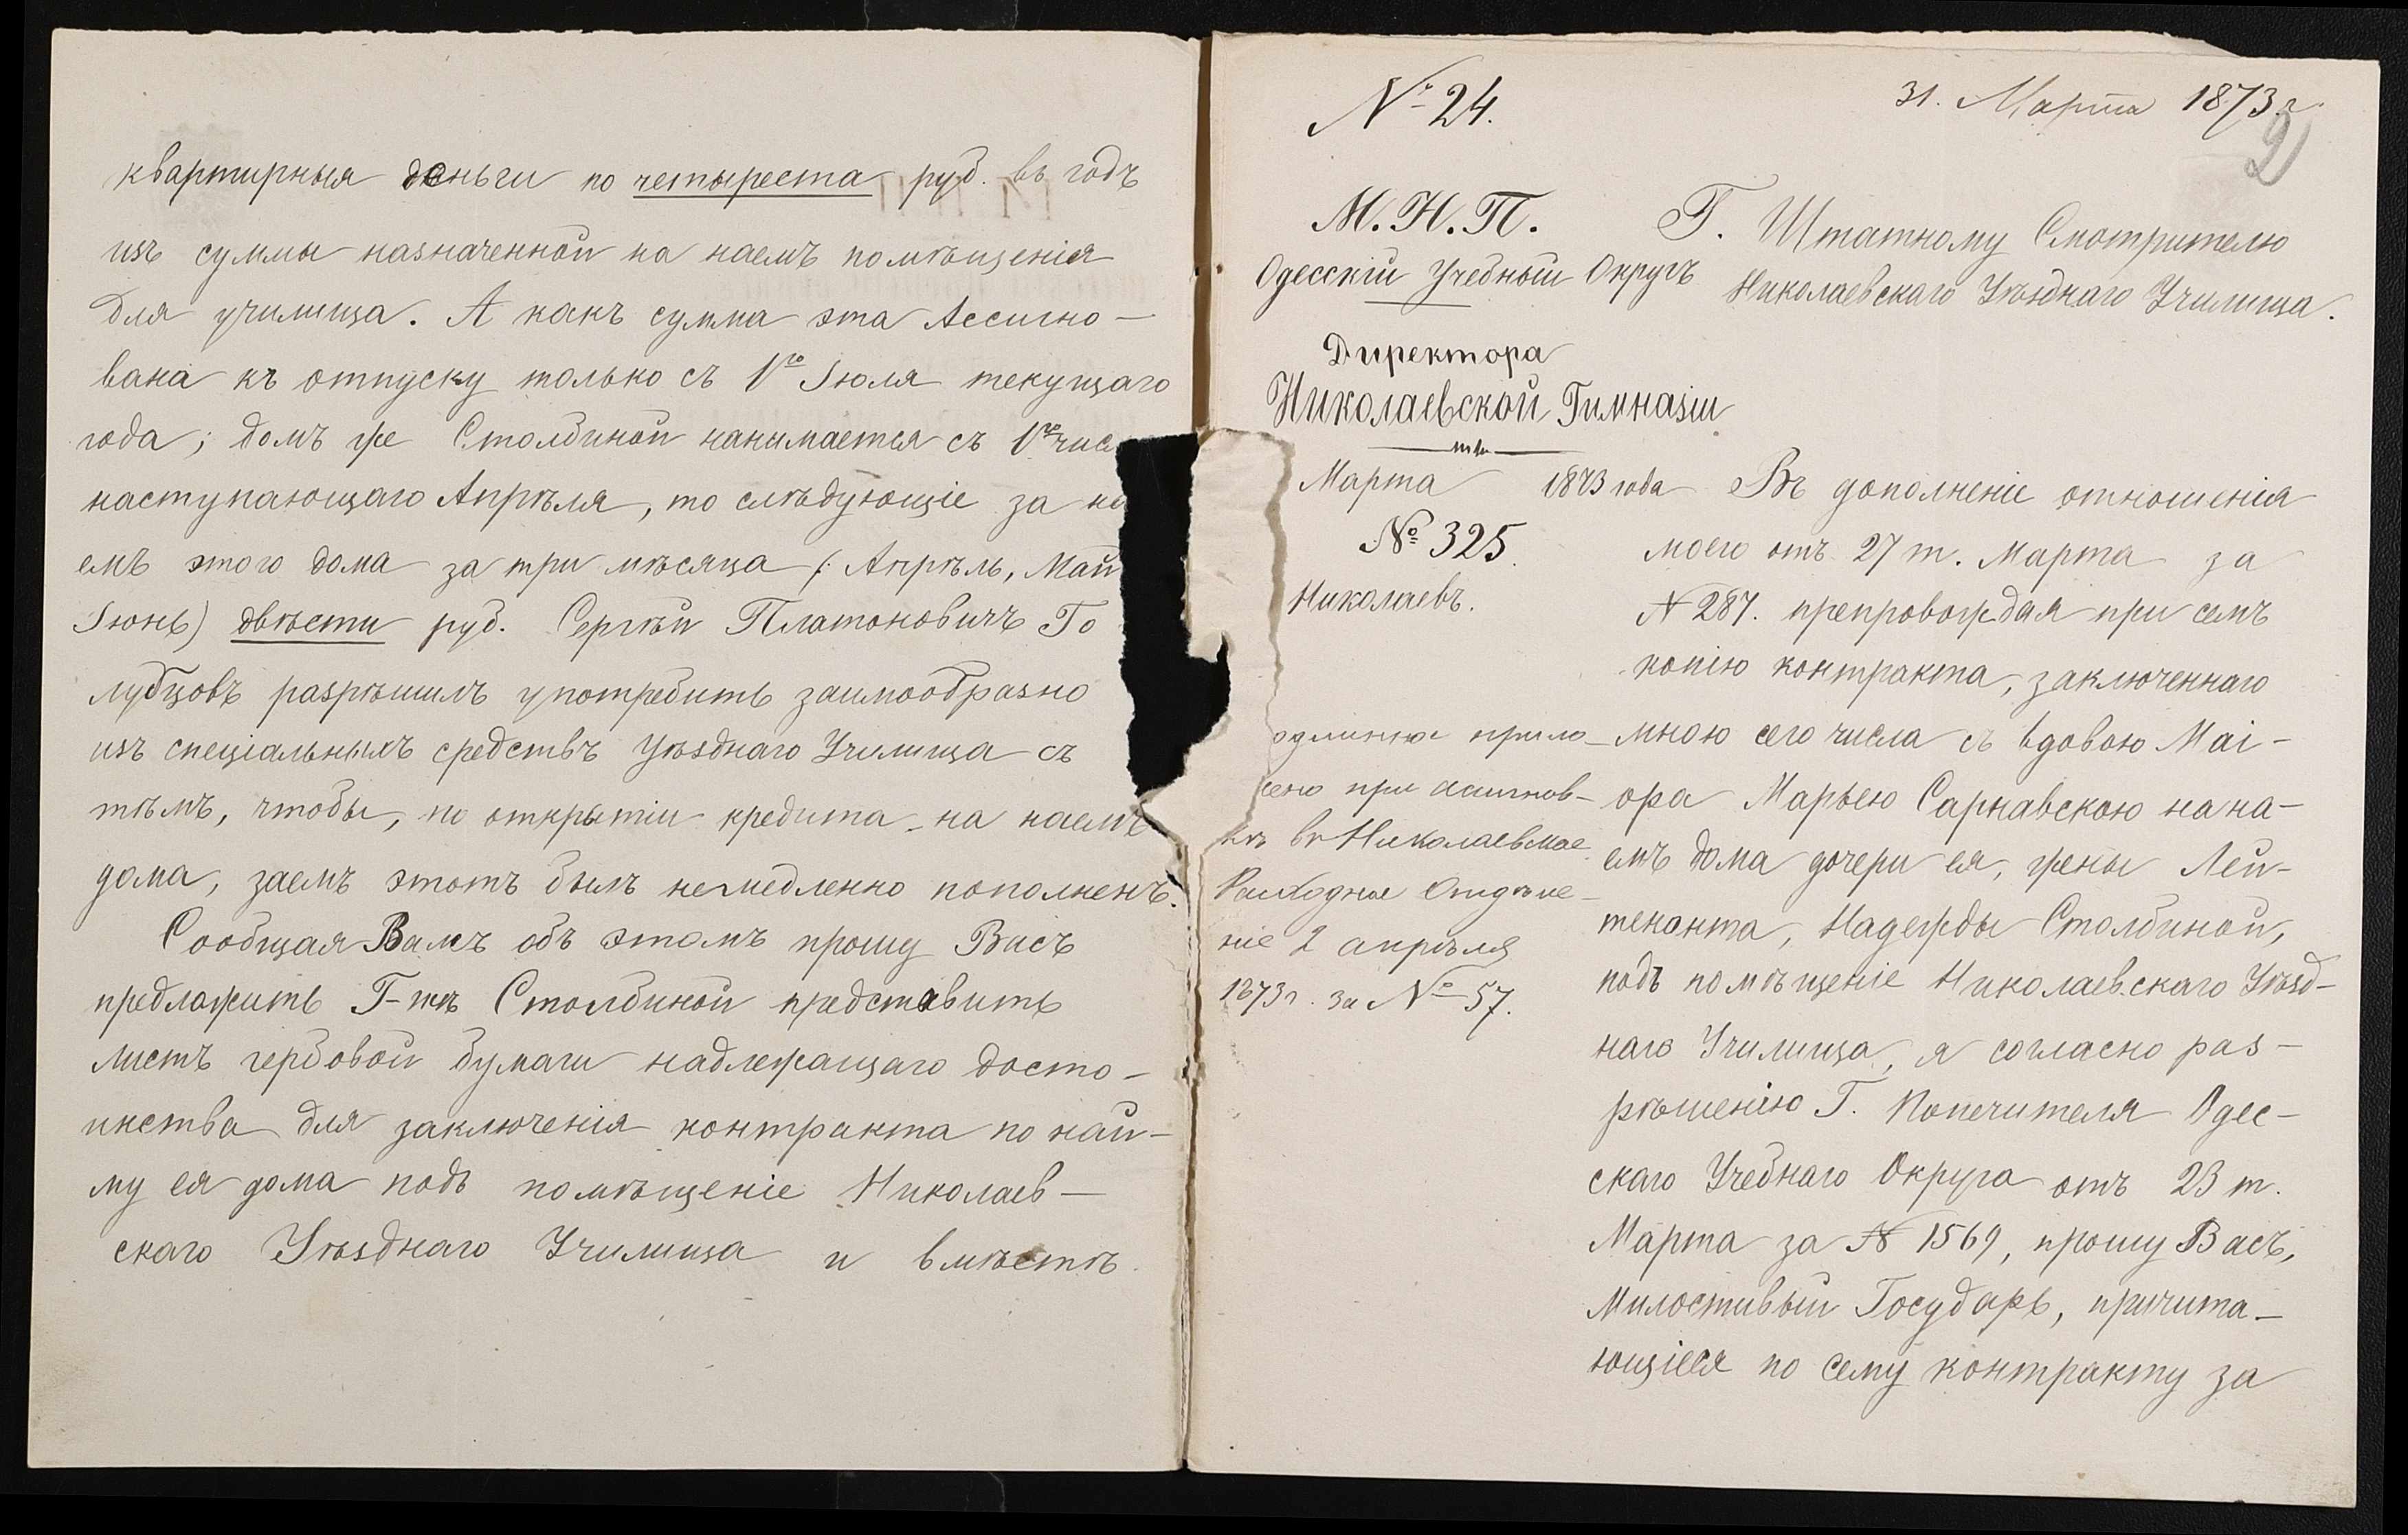 квартирныя деньги по четыреста руб. въ годъ
изъ суммы назначенной на наемъ помѣщенія
для училища. А какъ сумма эта Ассигно-
вана къ отпуску только съ 1го Іюля текущаго
года; домъ же Столбиной нанимается съ 1го чис
наступающаго Апрѣля, то слѣдующіе за на
емъ этого дома за три мѣсяца (: Апрѣль, Май
Іюнь) двѣсти руб. Сергѣй Платоновичъ Го
лубцовъ разрѣшилъ употребить заимообразно
изъ спеціальныхъ средствъ Уѣзднаго Училища съ
тѣмъ, чтобы, по открытіи кредита на наемъ
дома, заемъ этотъ былъ немедленно пополненъ.
Сообщая Вамъ объ этомъ прошу Васъ
предложить Г-жѣ Столбиной представить
листъ гербовой бумаги надлежащаго досто-
инства для заключенія контракта по най-
му ея дома подъ помѣщеніе Николаев-
скаго Уѣзднаго Училища и вмѣстѣ
№ 24.
31. Марта 1873 г.
2
М. Н. П.
Одесскій Учебный Округъ
Директора
Николаевской Гимназіи
Марта 1873 года
№ 325.
Николаевъ.
Г. Штатному Смотрителю
Николаевскаго Уѣзднаго Училища.
Въ дополненіе отношенія
моего отъ 27 т. Марта за
№ 287. препровождая при семъ
копію контракта, заключеннаго
мною сего числа съ вдовою Маі-
ора Марьею Сарнавскою на на-
емъ дома дочери ея, жены Лей-
тенанта, Надежды Столбиной,
подъ помѣщеніе Николаевскаго Уѣзд-
наго Училища, я согласно раз-
рѣшенію Г. Попечителя Одес-
скаго Учебнаго Округа отъ 23 т.
Марта за № 1569, прошу Васъ,
Милостивый Государь, причита-
ющіеся по сему контракту за
одлинное прило-
жено при ассигнов-
кѣ въ Николаевское
Расходное Отдѣле-
ніе 2 апрѣля
1873 г. за № 57.